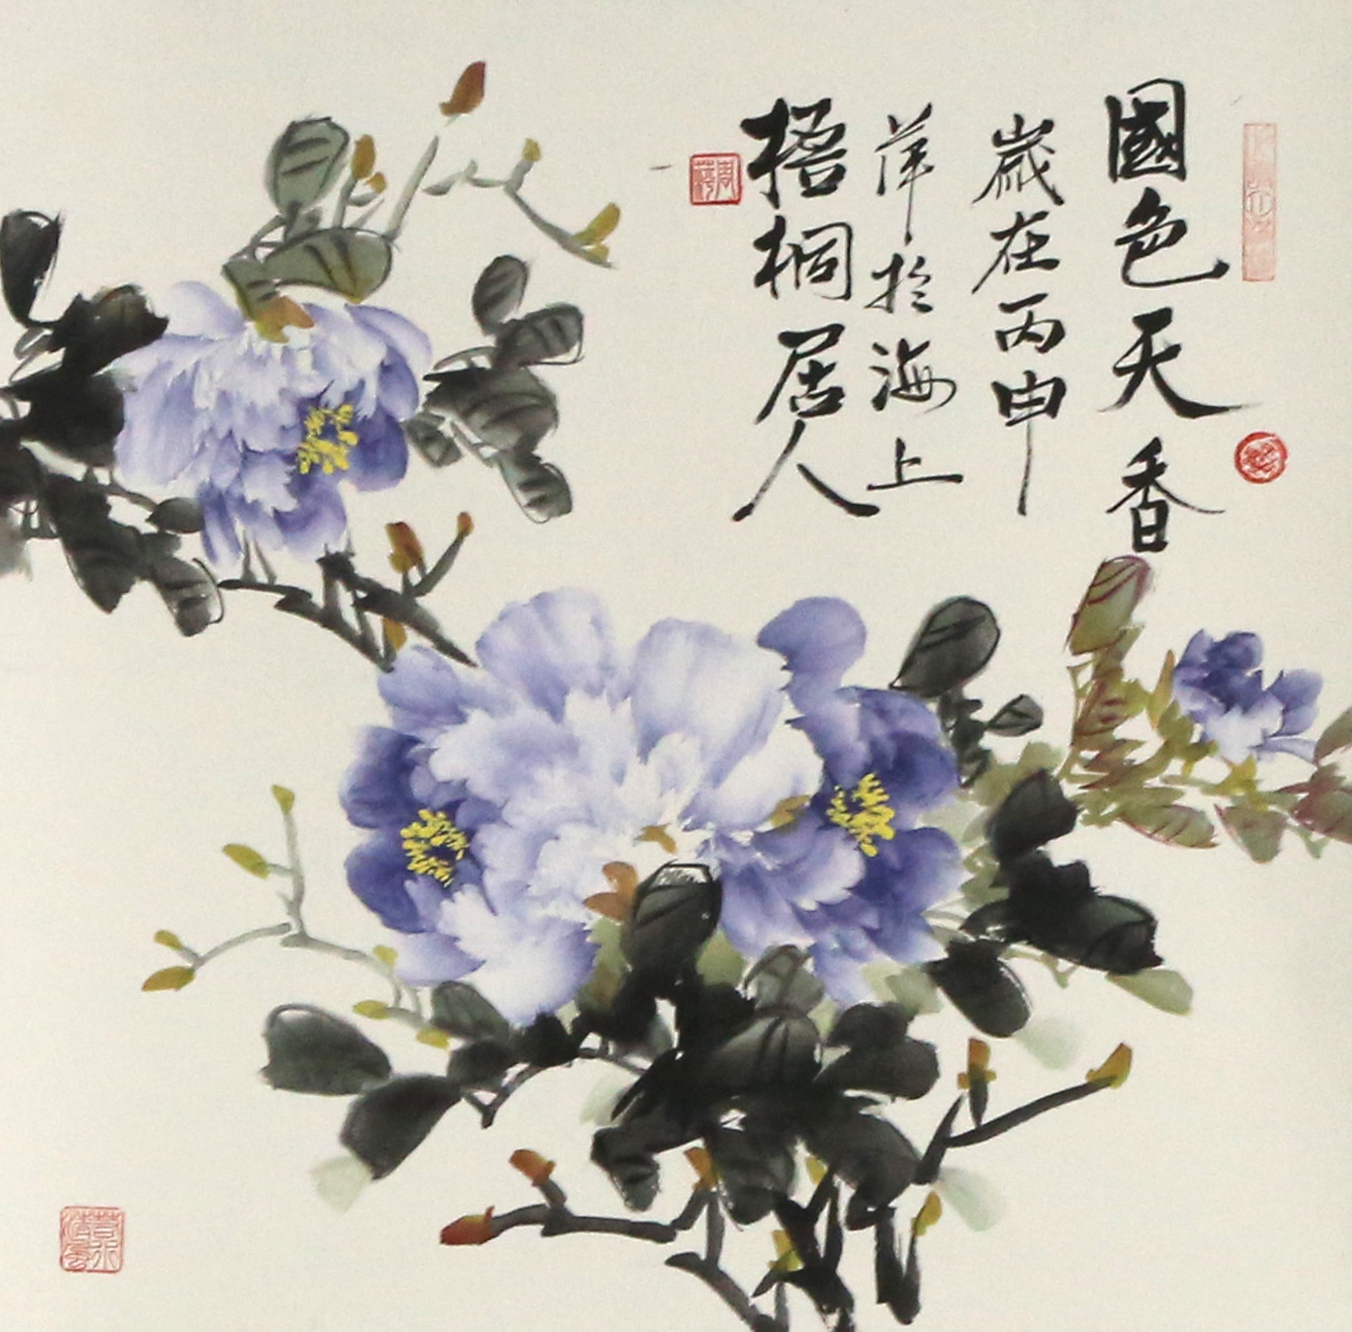 國色天香
歲在丙申
萍於海上
梧桐居人